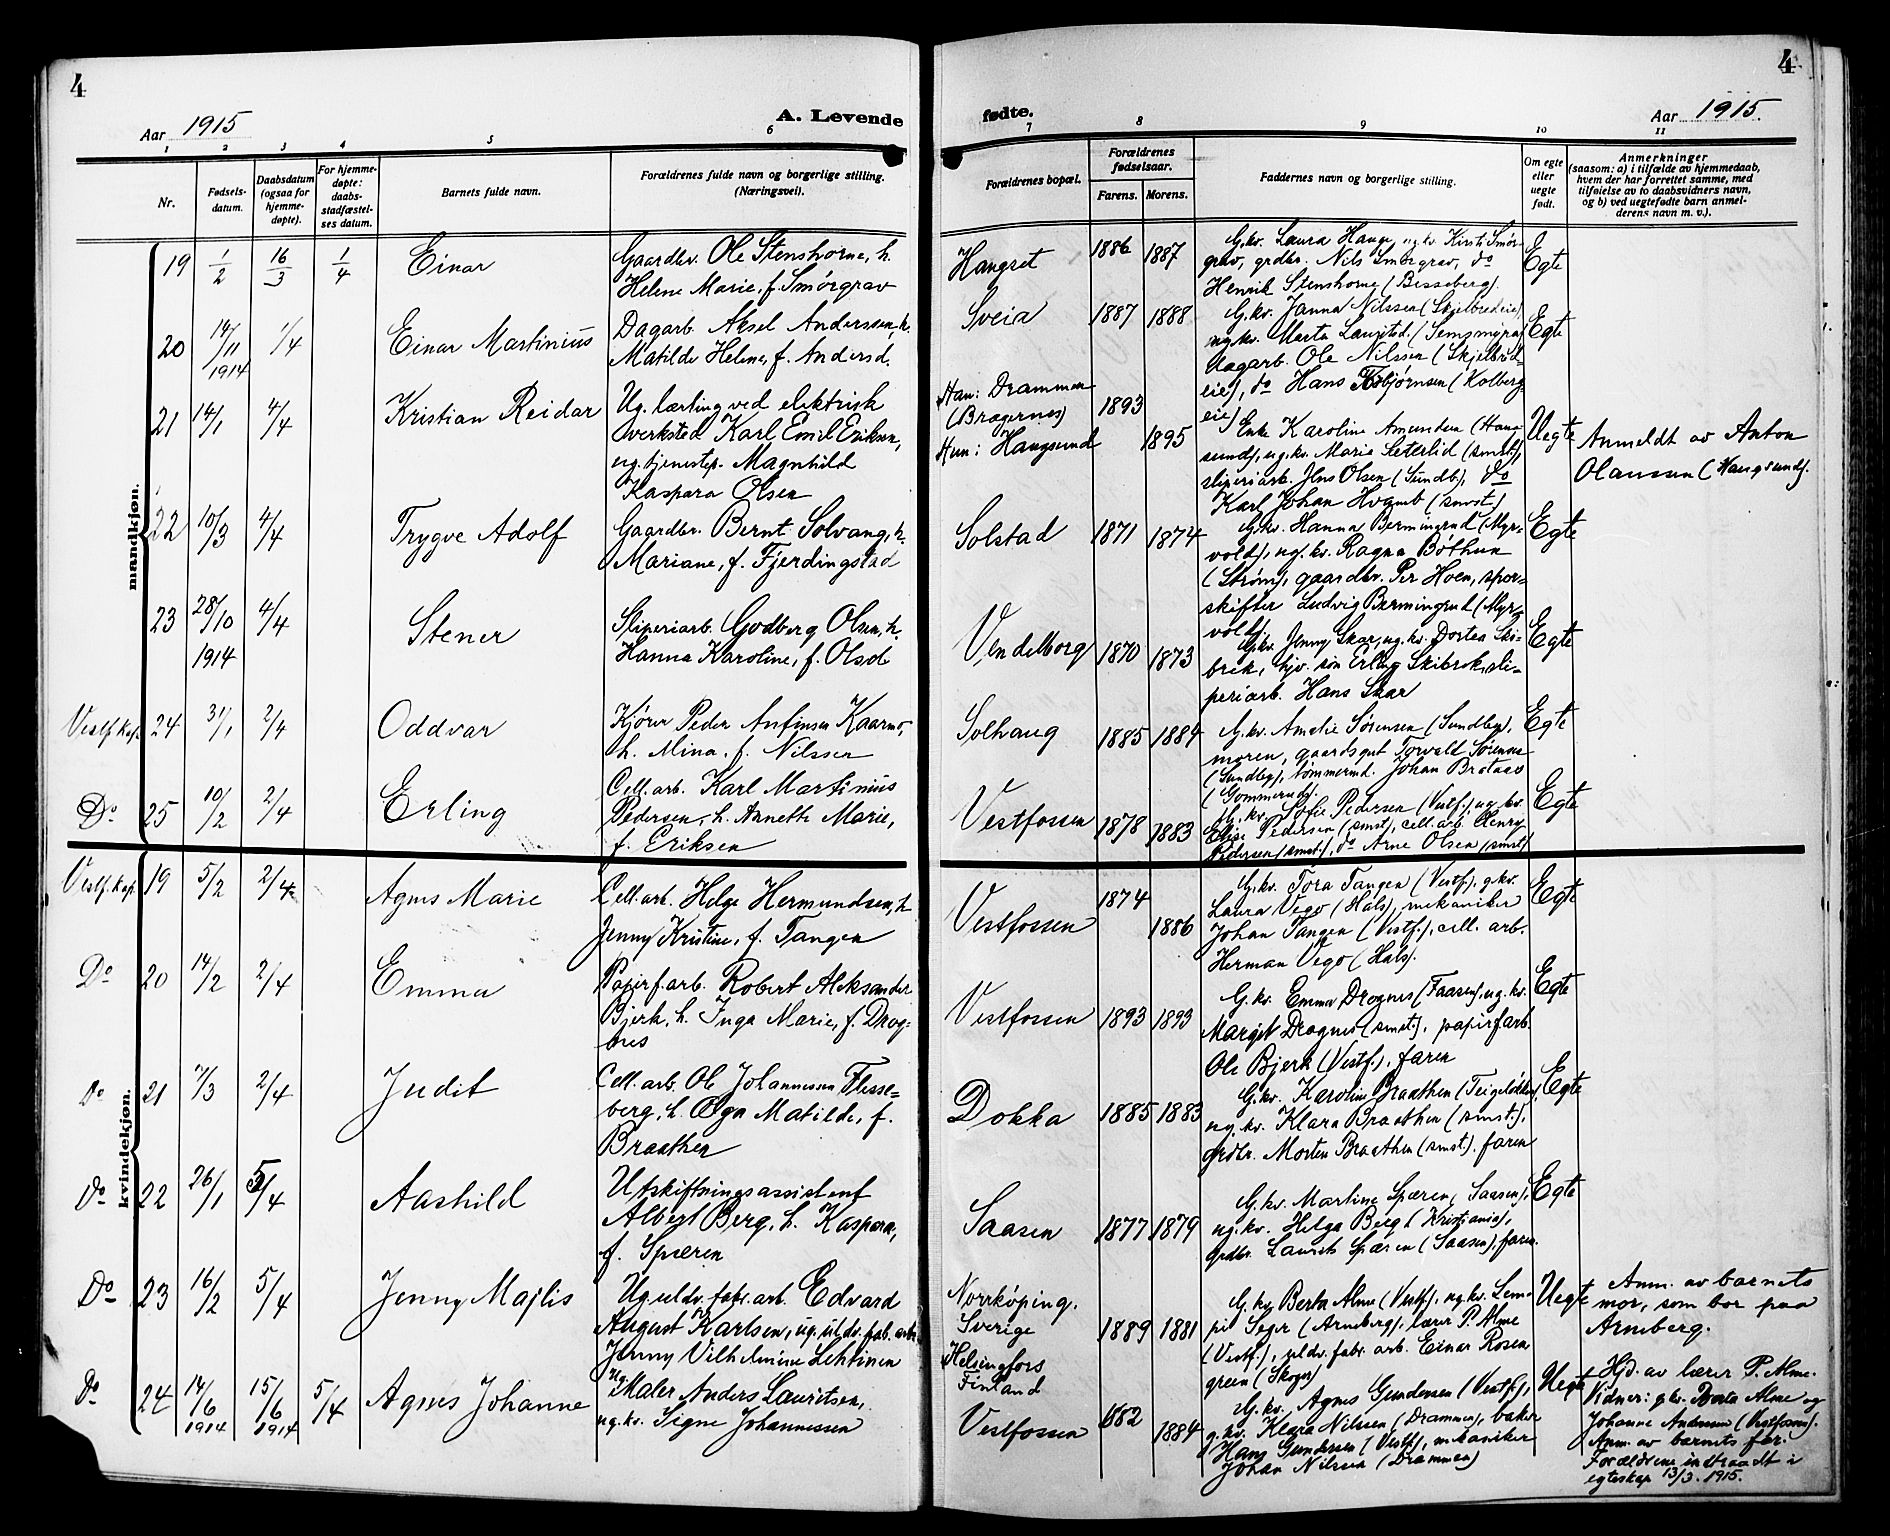 4
Aar 1915
A. Levende
1 2 3 4 5 6
Nr.
Fødsels-
datum.
Daabsdatum
(ogsaa for
hjemme-
døpte).
For hjemme-
døpte:
daabs-
stadfæstel-
ses datum.
Barnets fulde navn.
Forældrenes fulde navn og borgerlige stilling.
(Næringsvei).
mandkjøn.
19 1/2 16/3 1/4 Einar
Gaardbr. Ole Stenshorne, h.
Helene Marie, f. Smørgrav
20 14/11 1914 1/4 Einar Martinius
Dagarb. Aksel Anderssen, h.
Matilde Helene, f. Andersd.
21 14/1 4/4 Kristian Reidar
Ug. lærling ved elektrisk
verksted Karl Emil Eriksen,
ug. tjenestep. Magnhild
Kaspara Olsen
22 10/3 4/4 Trygve Adolf
Gaardbr. Bernt Solvang, h.
Mariane, f. Fjerdingstad
23 28/10 1914 4/4 Stener
Sliperiarb. Godberg Olsen, h.
Hanna Karoline, f. Olsd.
Vestf. kap. 24 31/1 2/4 Oddvar
Kjører Peder Anfinsen Kaarmo,
h. Mina, f. Nilssen
Do 25 10/2 2/4 Erling
Cell. arb. Karl Martinius
Pedersen, h. Annette Marie,
f. Eriksen
kvindekjøn.
Vestf. kap. 19 5/2 2/4 Agnes Marie
Cell. arb. Helge Hermundsen, h.
Jenny Kristine, f. Tangen
Do 20 14/2 2/4 Emma
Papirf. arb. Robert Aleksander
Bjerk, h. Inga Marie, f. Drog-
nes
Do 21 7/3 2/4 Judit
Cell. arb. Ole Johannesen Flesse-
berg, h. Olga Matilde, f.
Braathen
Do 22 26/1 5/4 Aashild
Utskiftningsassistent
Albert Berg, h. Kaspara,
f. Spæren
Do 23 16/2 5/4 Jenny Majlis
Ug. uldv. fabr. arb. Edvard
August Karlsen, ug. uldv. fab. arb.
Jenny Vilhelmine Lehtinen
Do 24 14/6 1914 15/6 1914 5/4 Agnes Johanne
Ug. Maler Anders Lauritsen,
ug. kv. Signe Johannessen
4
fødte.
Aar 1915.
7 8 9 10 11
Forældrenes bopæl.
Forældrenes
fødselsaar.
Farens. Morens.
Faddernes navn og borgerlige stilling.
Om egte
eller
uegte
født.
Anmerkninger
(saasom: a) i tilfælde av hjemmedaab,
hvem der har forrettet samme, med
tilføielse av to daabsvidners navn,
og b) ved uegtefødte barn anmel-
derens navn m. v.).
Haugset 1886 1887
G.kv. Laura Hauge, ug. kv. Kirsti Smør-
grav, grdbr. Nils Smørgrav, do
Henrik Stenshorne (Besseberg).
Egte
Sveia 1887 1888
G.kv. Janna Nilssen (Skjelbredeie)
ug. kv. Marta Laurstad (Semsmyra)
dagarb. Ole Nilssen (Skjelbred-
eie), do Hans Torbjørnsen (Kolberg-
eie)
Egte
Han: Drammen
(Bragernes) 1893
Hun: Haugsund 1895
Enke Karoline Amundsen (Haug-
sund), ug. kv. Marie Seterlid (smst),
sliperiarb. Jens Olsen (Sundb), do
Karl Johan (smst.)
Uegte
Anmeldt av Anton
Olaussen (Haugsund).
Solstad 1871 1874
G.kv. Hanna Bermingrud (Myr-
vold), ug. kv. Ragna Bøthun
(Strøm), gaardbr. Per Hoen, spor-
skifter Ludvig Bermingrud (Myr-
vold)
Egte
Vendelborg 1870 1873
G.kv. Jenny Skar, ug. kv. Dortea Ski-
brek, hjv. søn Erling Skibrek, sli-
periarb. Hans Skar
Egte
Solhaug 1885 1884
G.kv. Amalie Sørensen (Sundby),
moren, gaardsgut Torvald Sørensen
(Sundby), tømmermd. Johan Brataas
(Gommerud).
Egte
Vestfossen 1878 1883
G.kv. Sofie Pedersen (Vestf.) ug. kv.
Elise Pedersen (smst), cell. arb. Henry
Pedersen (smst.), do Arne Olsen (smst)
Egte
Vestfossen 1874 1886
G.kv. Tora Tangen (Vestf.), g.kv.
Laura Vego (Hals), mekaniker
Johan Tangen (Vestf.), cell. arb.
Herman Vego (Hals).
Egte
Vestfossen 1893 1893
G.kv. Emma Drognes (Faasen), ug. kv.
Margit Drognes (smst.), papirfarb.
Ole Bjerk (Vestf.), faren
Egte
Dokka 1885 1883
G.kv. Karoline Braathen (Teigeløkken),
ug. kv. Klara Braathen (smst.),
grdbr. Morten Braathen (smst.), faren
Egte
Saasen 1877 1879
G.kv. Martine Spæren, (Saasen),
ug. kv. Helga Berg (Kristiania),
grdbr. Laurits Spæren (Saasen), faren.
Egte
Norrköping.
Sverige
Helsingfors
Finland 1889 1881
G.kv. Berta Alme (Vestf), ug. kv. Lem-
pi Seger (Arneberg), lærer P. Alme
(Vestf.), uldv. fabr. arb. Einar Rosen
green (Skoger)
Uegte
Anm. av barnets
mor, som bor paa
Arneberg.
Vestfossen 1882 1884
G.kv. Agnes Gundersen (Vestf),
g.kv. Klara Nilssen (Drammen), baker
Hans Gundersen (Vestf), mekaniker
Johan Nilssen (Drammen)
Uegte
Hjd. av lærer P. Alme.
Vidner: g.kv. Berta Alme og
Johanne Andersen (Vestfossen).
Anm. av barnets far.
Forældrene indtraadt i
egteskap 13/3. 1915.